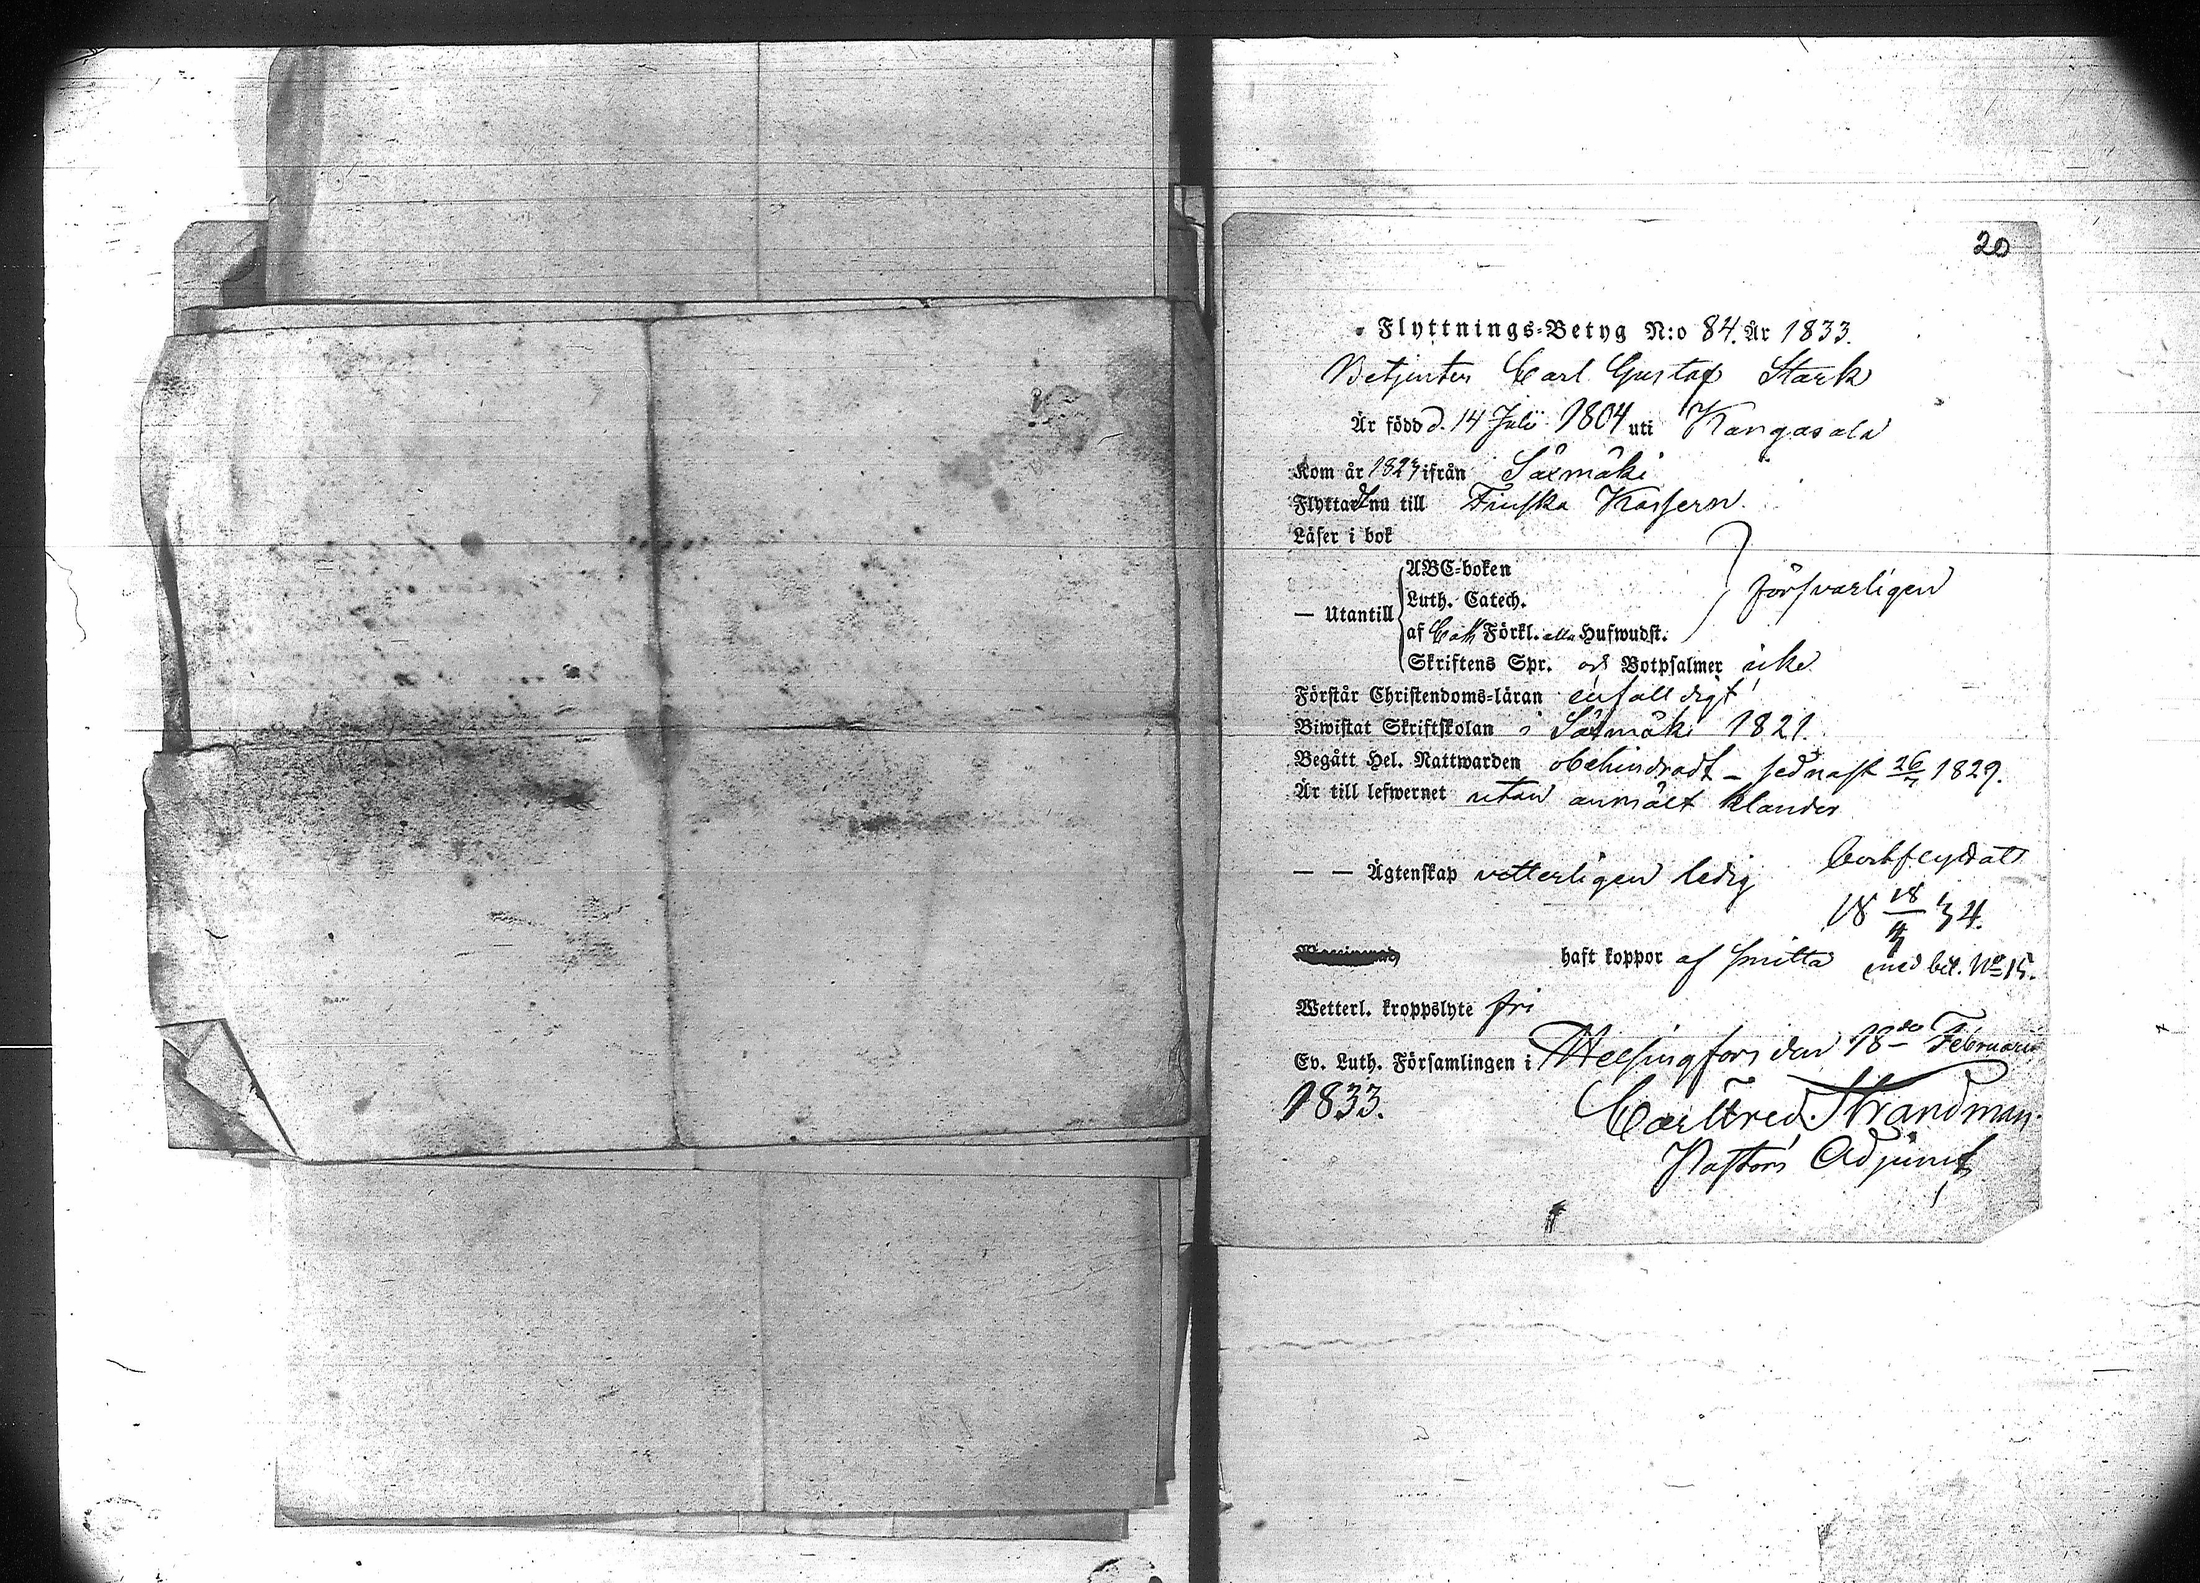 20
Flyttnings-Betyg N:o 84. År 1833.
Betjenten Carl Gustaf Stark
Är född d. 14 Julii 1804 uti Kangasala
Kom år 1823 ifrån Säxmäki
Flyttar nu till Finska Kassern.
Läser i bok
ABC-boken
Luth. Catech.
försvarligen
— Utantill
af Cat. Förkl. alla Hufwudst.
Skriftens Spr. och Botpsalmer icke
Förstår Christendoms-läran enfalldigt
Biwistat Skriftskolan i Säxmäki 1821.
Begått Hel. Nattwarden obehindradt – sednast 26/7 1829.
Är till lefwernet utan anmält klander
bortflyttat
— — Ägtenskap vetterligen ledig
18 18/4 34.
haft koppor af smitta med bet. No 15.
Wetterl. kroppslyte fri
Ev. Luth. Församlingen i Helsingfors den 18de Februarii
1833.
Carl Fred. Strandman.
Pastors Adjunct